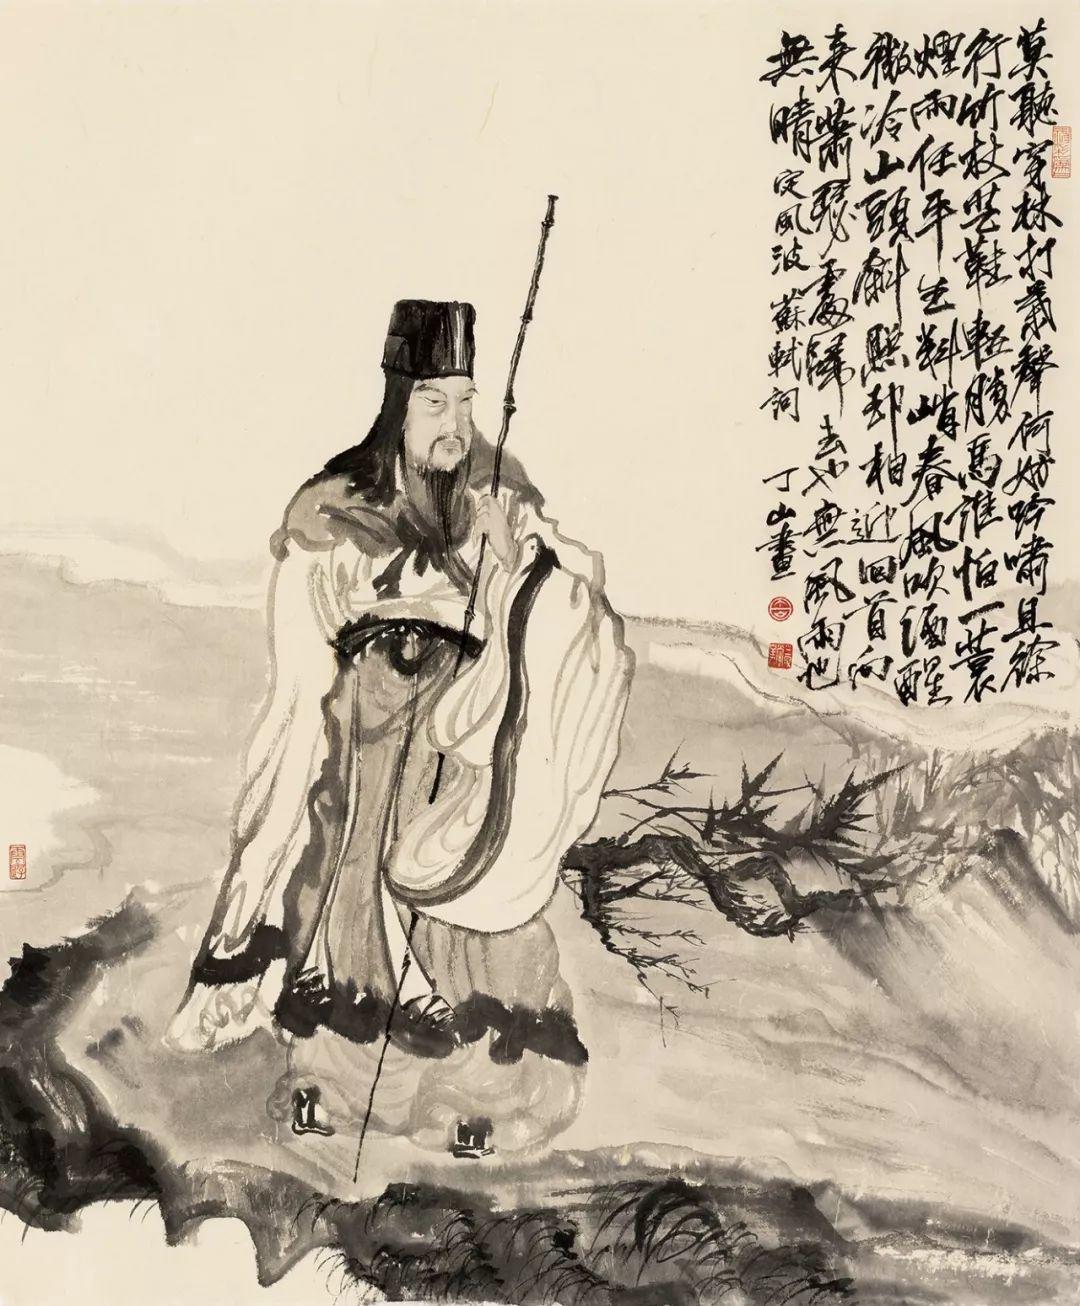 莫聽穿林打葉聲何妨吟嘯且徐
行竹杖芒鞋輕勝馬誰怕一蓑
煙雨任平生料峭春風吹酒醒
微冷山頭斜照却相迎回首向
来蕭瑟處歸去也無風雨也
無晴 定風波 蘇軾詞 丁山畫